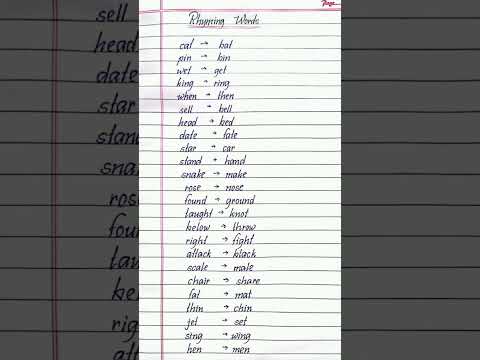 Page
Rhyming Words
cat → bat
pin → bin
wet → get
king → ring
when → then
sell → bell
head → bed
date → fate
star → car
stand → hand
snake → make
rose → nose
found → ground
taught → knot
below → throw
right → fight
attack → black
scale → male
chair → share
fat → mat
thin → chin
jet → set
sing → wing
hen → men
sell
head
date
star
stand
snake